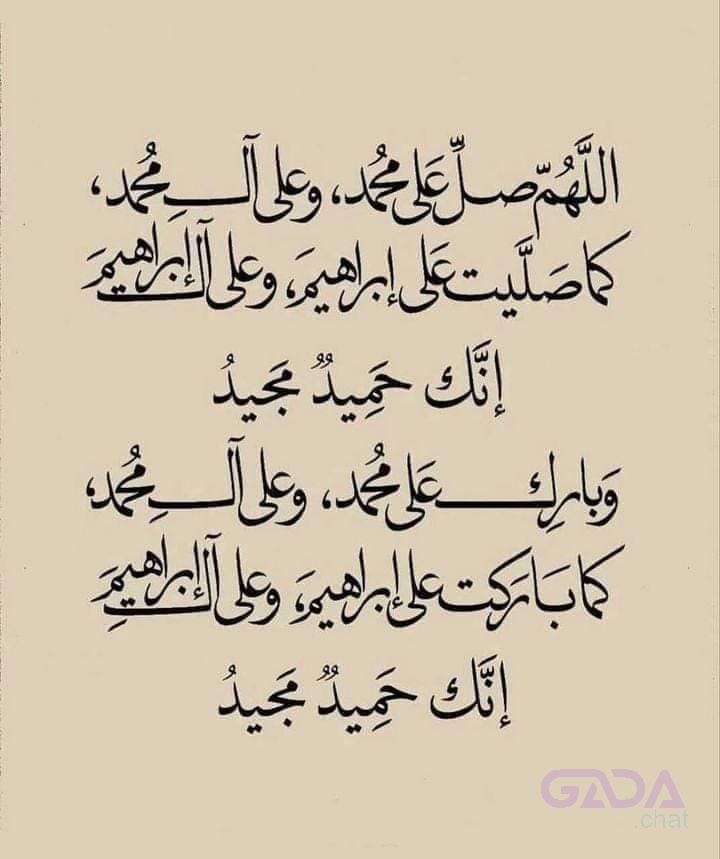 اللَّهُمّ صلِّ عَلى مُحمد، وعلى آلِ مُحمد،
كما صَلَّيت عَلى إبراهيمَ، وعلى آل إبراهيمَ
إنَّك حَمِيدٌ مَجيدُ
وَبارِك عَلى مُحمد، وعلى آلِ مُحمد،
كما بَاركت على إبراهيمَ، وعلى آل إبراهيمَ
إنَّك حَمِيدٌ مَجيدُ
GADA
.chat